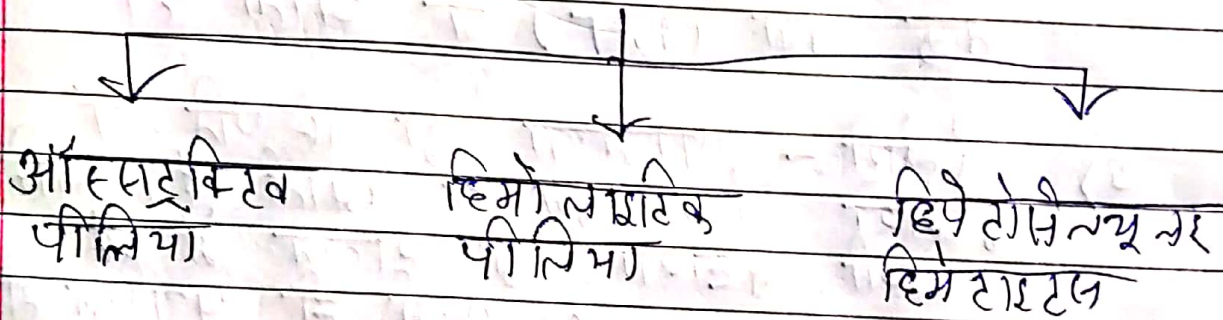 ऑस्सट्रक्टिव
पीलिया
हिमोलाइटिक
पीलिया
हिपेटोसैल्यूलर
हिमेटाइटस